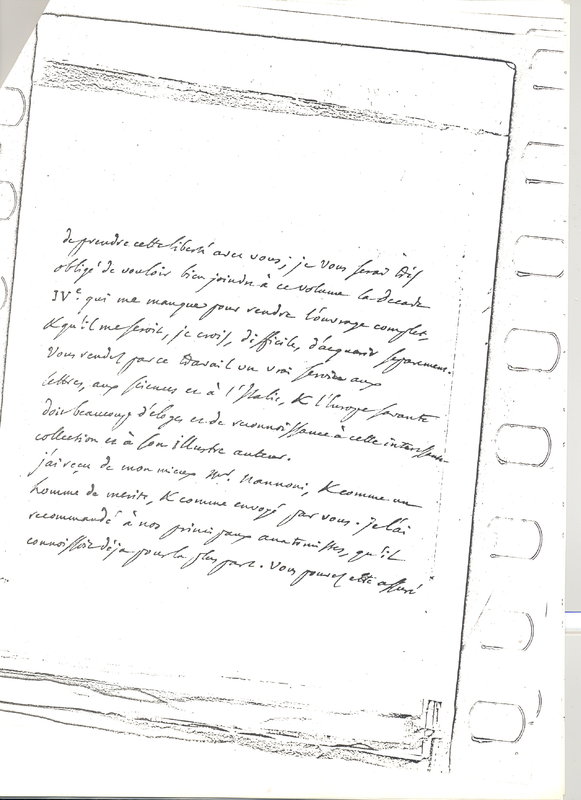 de prendre cette liberté avec vous; je vous serai très
obligé de vouloir bien joindre à ce volume la decade
IVe. qui me manque pour rendre l'ouvrage complet,
& qu'il me seroit, je crois, difficile, d'acquerir separement.
Vous rendez par ce travail un vrai service aux
lettres, aux sciences et à l'Italie, & l'Europe savante
doit beaucoup d'éloges et de reconnoissance à cette interessante
collection et à son illustre auteur.
j'ai reçu de mon mieux Mr. Nannoni, & comme un
homme de merite, & comme envoyé par vous. je l'ai
recommandé à nos principaux anatomistes, qu'il
connoissoit déja pour la plus part. Vous pouvez etre assuré